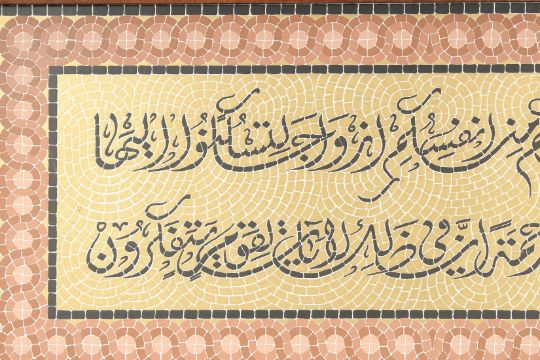 من انفسكم ازواجا لتسكنوا اليها
ان فى ذلك لايات لقوم يتفكرون